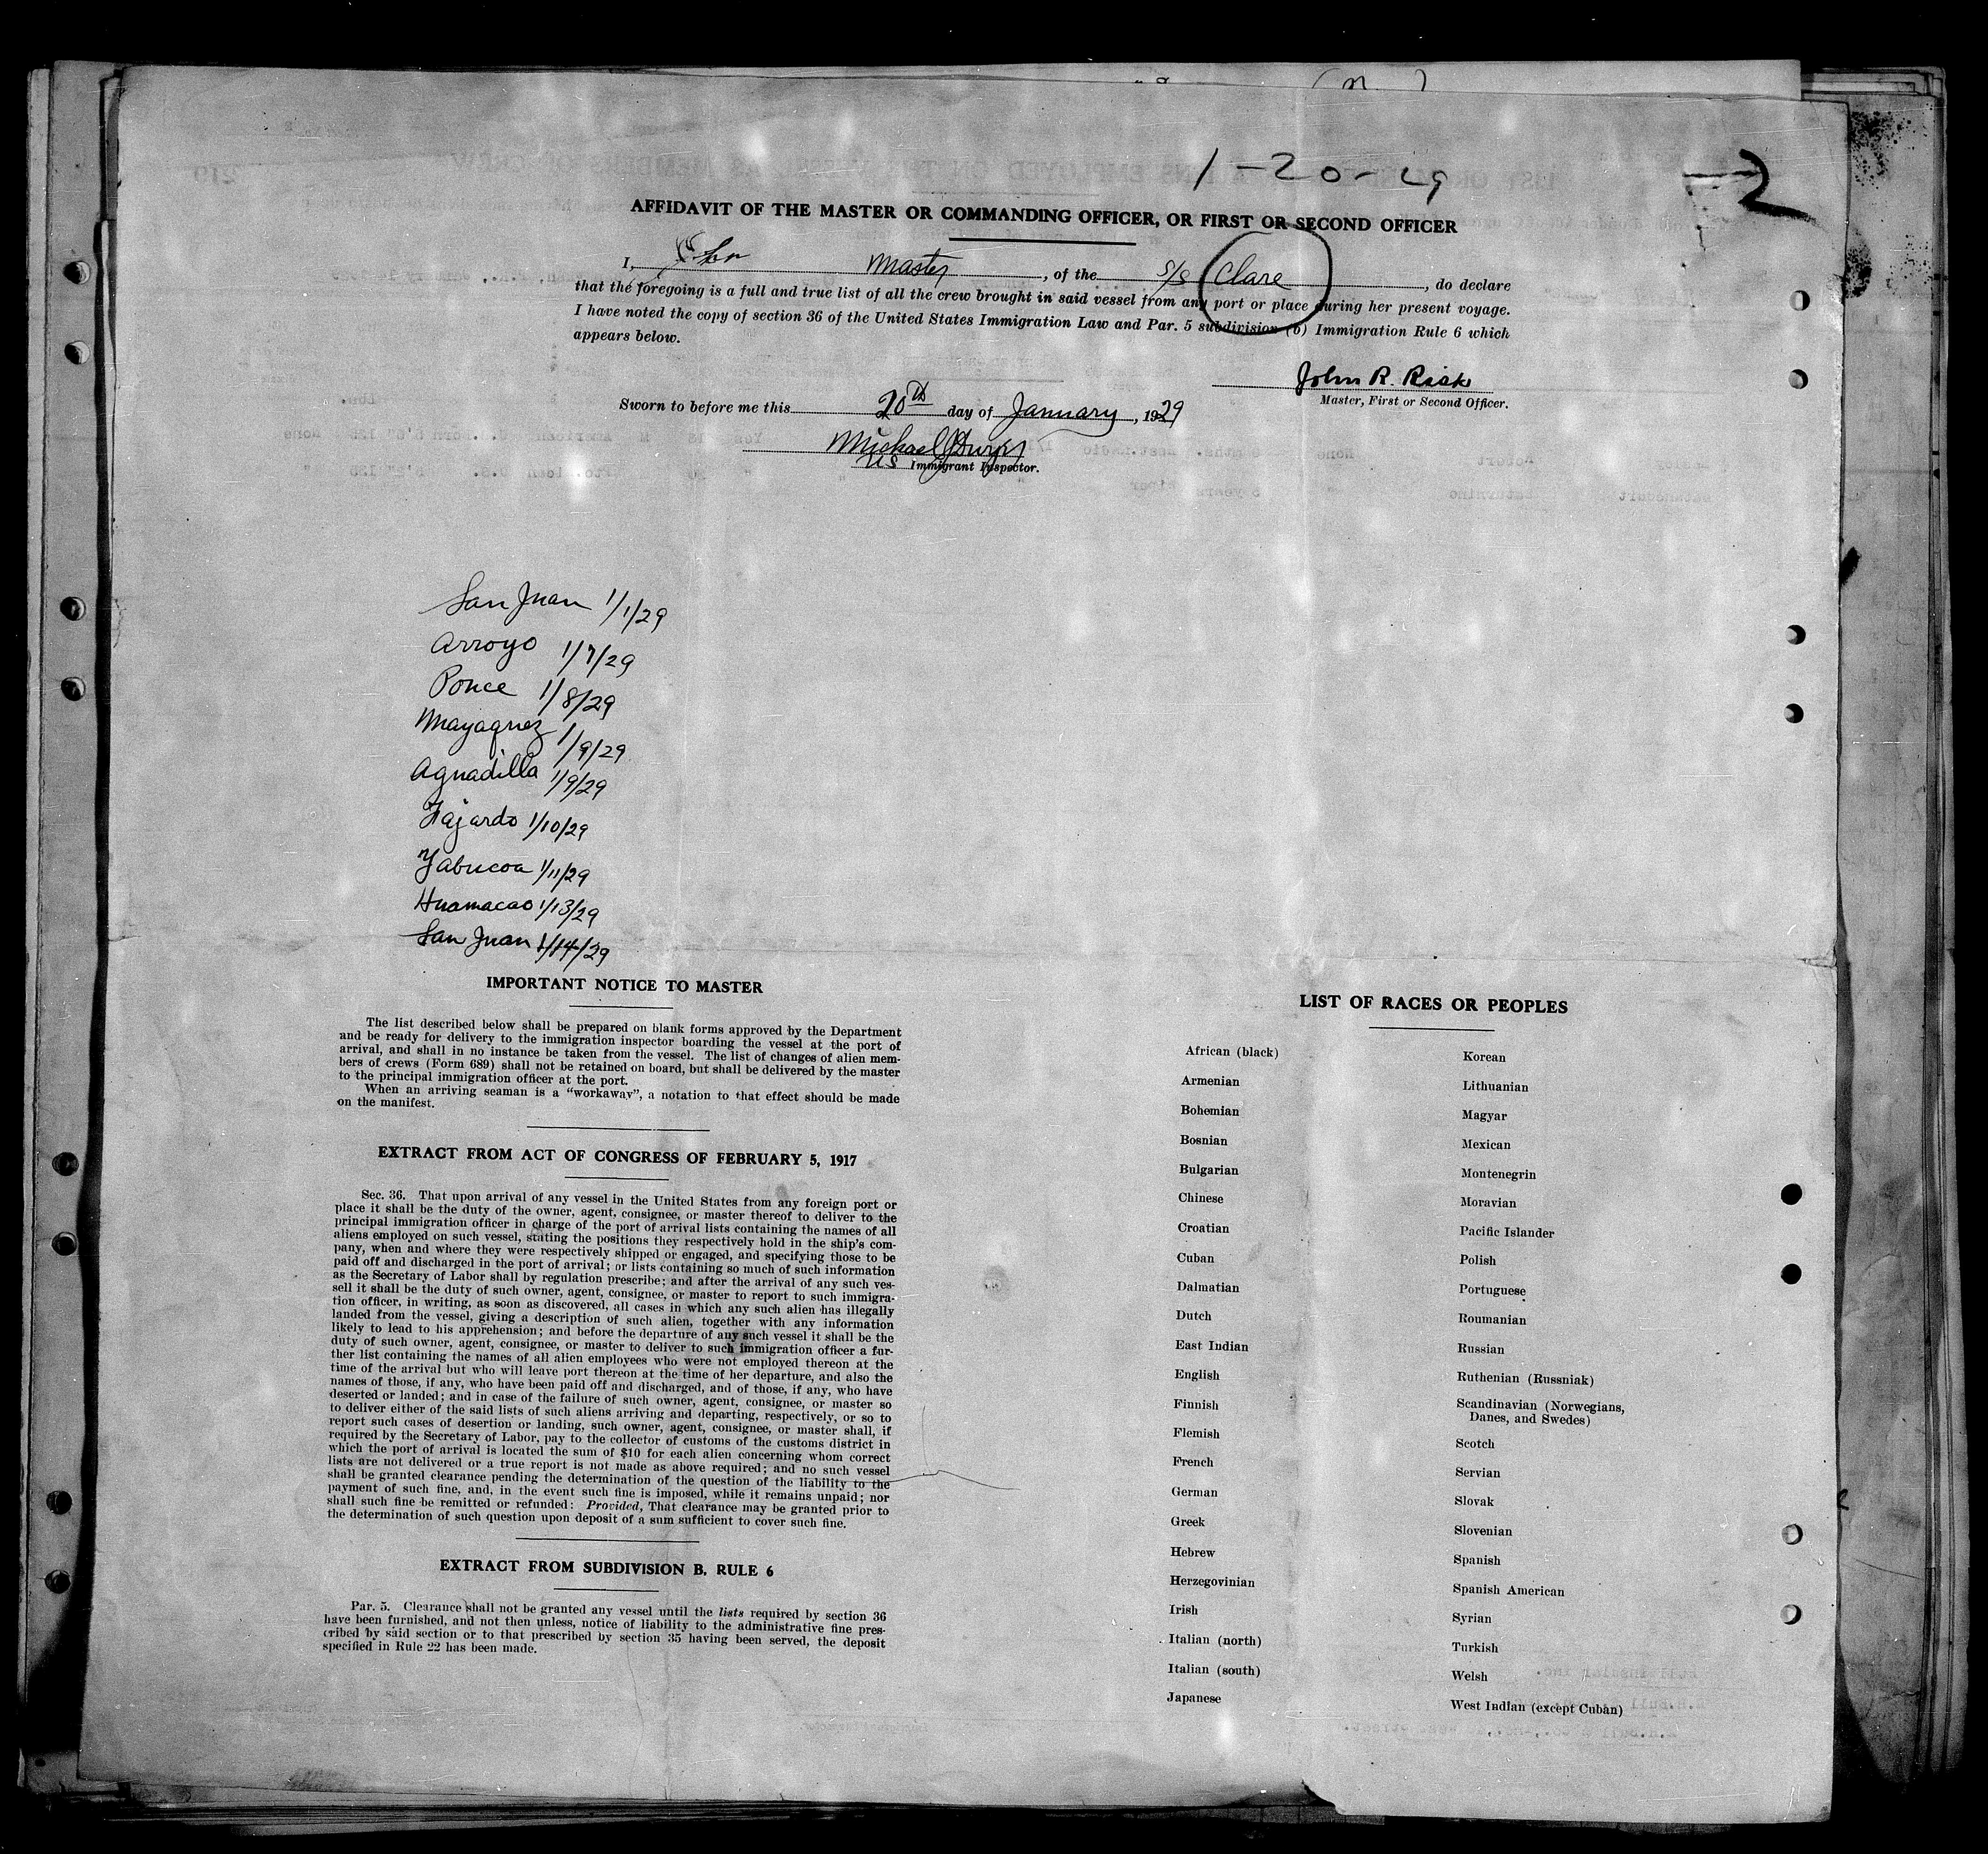 1-20-29
2
AFFIDAVIT OF THE MASTER OR COMMANDING OFFICER, OR FIRST OR SECOND OFFICER
I, Master, of the S/S Clare, do declare
that the foregoing is a full and true list of all the crew brought in said vessel from any port or place during her present voyage.
I have noted the copy of section 36 of the United States Immigration Law and Par. 5 subdivision (b) Immigration Rule 6 which
appears below.
John R. Risk
Master, First or Second Officer.
Sworn to before me this 20th day of January, 1929
Michael
US Immigrant Inspector.
San Juan 1/1/29
Arroyo 1/7/29
Ponce 1/8/29
Mayaquez 1/9/29
Aguadilla 1/9/29
Fajardo 1/10/29
Yabucoa 1/11/29
Huamacao 1/13/29
San Juan 1/14/29
IMPORTANT NOTICE TO MASTER
The list described below shall be prepared on blank forms approved by the Department
and be ready for delivery to the immigration inspector boarding the vessel at the port of
arrival, and shall in no instance be taken from the vessel. The list of changes of alien mem-
bers of crews (Form 689) shall not be retained on board, but shall be delivered by the master
to the principal immigration officer at the port.
When an arriving seaman is a "workaway", a notation to that effect should be made
on the manifest.
EXTRACT FROM ACT OF CONGRESS OF FEBRUARY 5, 1917
Sec. 36. That upon arrival of any vessel in the United States from any foreign port or
place it shall be the duty of the owner, agent, consignee, or master thereof to deliver to the
principal immigration officer in charge of the port of arrival lists containing the names of all
aliens employed on such vessel, stating the positions they respectively hold in the ship's com-
pany, when and where they were respectively shipped or engaged, and specifying those to be
paid off and discharged in the port of arrival; or lists containing so much of such information
as the Secretary of Labor shall by regulation prescribe; and after the arrival of any such ves-
sell it shall be the duty of such owner, agent, consignee, or master to report to such immigra-
tion officer, in writing, as soon as discovered, all cases in which any such alien has illegally
landed from the vessel, giving a description of such alien, together with any information
likely to lead to his apprehension; and before the departure of any such vessel it shall be the
duty of such owner, agent, consignee, or master to deliver to such immigration officer a fur-
ther list containing the names of all alien employees who were not employed thereon at the
time of the arrival but who will leave port thereon at the time of her departure, and also the
names of those, if any, who have been paid off and discharged, and of those, if any, who have
deserted or landed; and in case of the failure of such owner, agent, consignee, or master so
to deliver either of the said lists of such aliens arriving and departing, respectively, or so to
report such cases of desertion or landing, such owner, agent, consignee, or master shall, if
required by the Secretary of Labor, pay to the collector of customs of the customs district in
which the port of arrival is located the sum of $10 for each alien concerning whom correct
lists are not delivered or a true report is not made as above required; and no such vessel
shall be granted clearance pending the determination of the question of the liability to the
payment of such fine, and, in the event such fine is imposed, while it remains unpaid; nor
shall such fine be remitted or refunded: Provided, That clearance may be granted prior to
the determination of such question upon deposit of a sum sufficient to cover such fine.
EXTRACT FROM SUBDIVISION B, RULE 6
Par. 5. Clearance shall not be granted any vessel until the lists required by section 36
have been furnished, and not then unless, notice of liability to the administrative fine pres-
cribed by said section or to that prescribed by section 35 having been served, the deposit
specified in Rule 22 has been made.
LIST OF RACES OR PEOPLES
African (black)
Armenian
Bohemian
Bosnian
Bulgarian
Chinese
Croatian
Cuban
Dalmatian
Dutch
East Indian
English
Finnish
Flemish
French
German
Greek
Hebrew
Herzegovinian
Irish
Italian (north)
Italian (south)
Japanese
Korean
Lithuanian
Magyar
Mexican
Montenegrin
Moravian
Pacific Islander
Polish
Portuguese
Roumanian
Russian
Ruthenian (Russniak)
Scandinavian (Norwegians,
Danes, and Swedes)
Scotch
Servian
Slovak
Slovenian
Spanish
Spanish American
Syrian
Turkish
Welsh
West Indian (except Cuban)